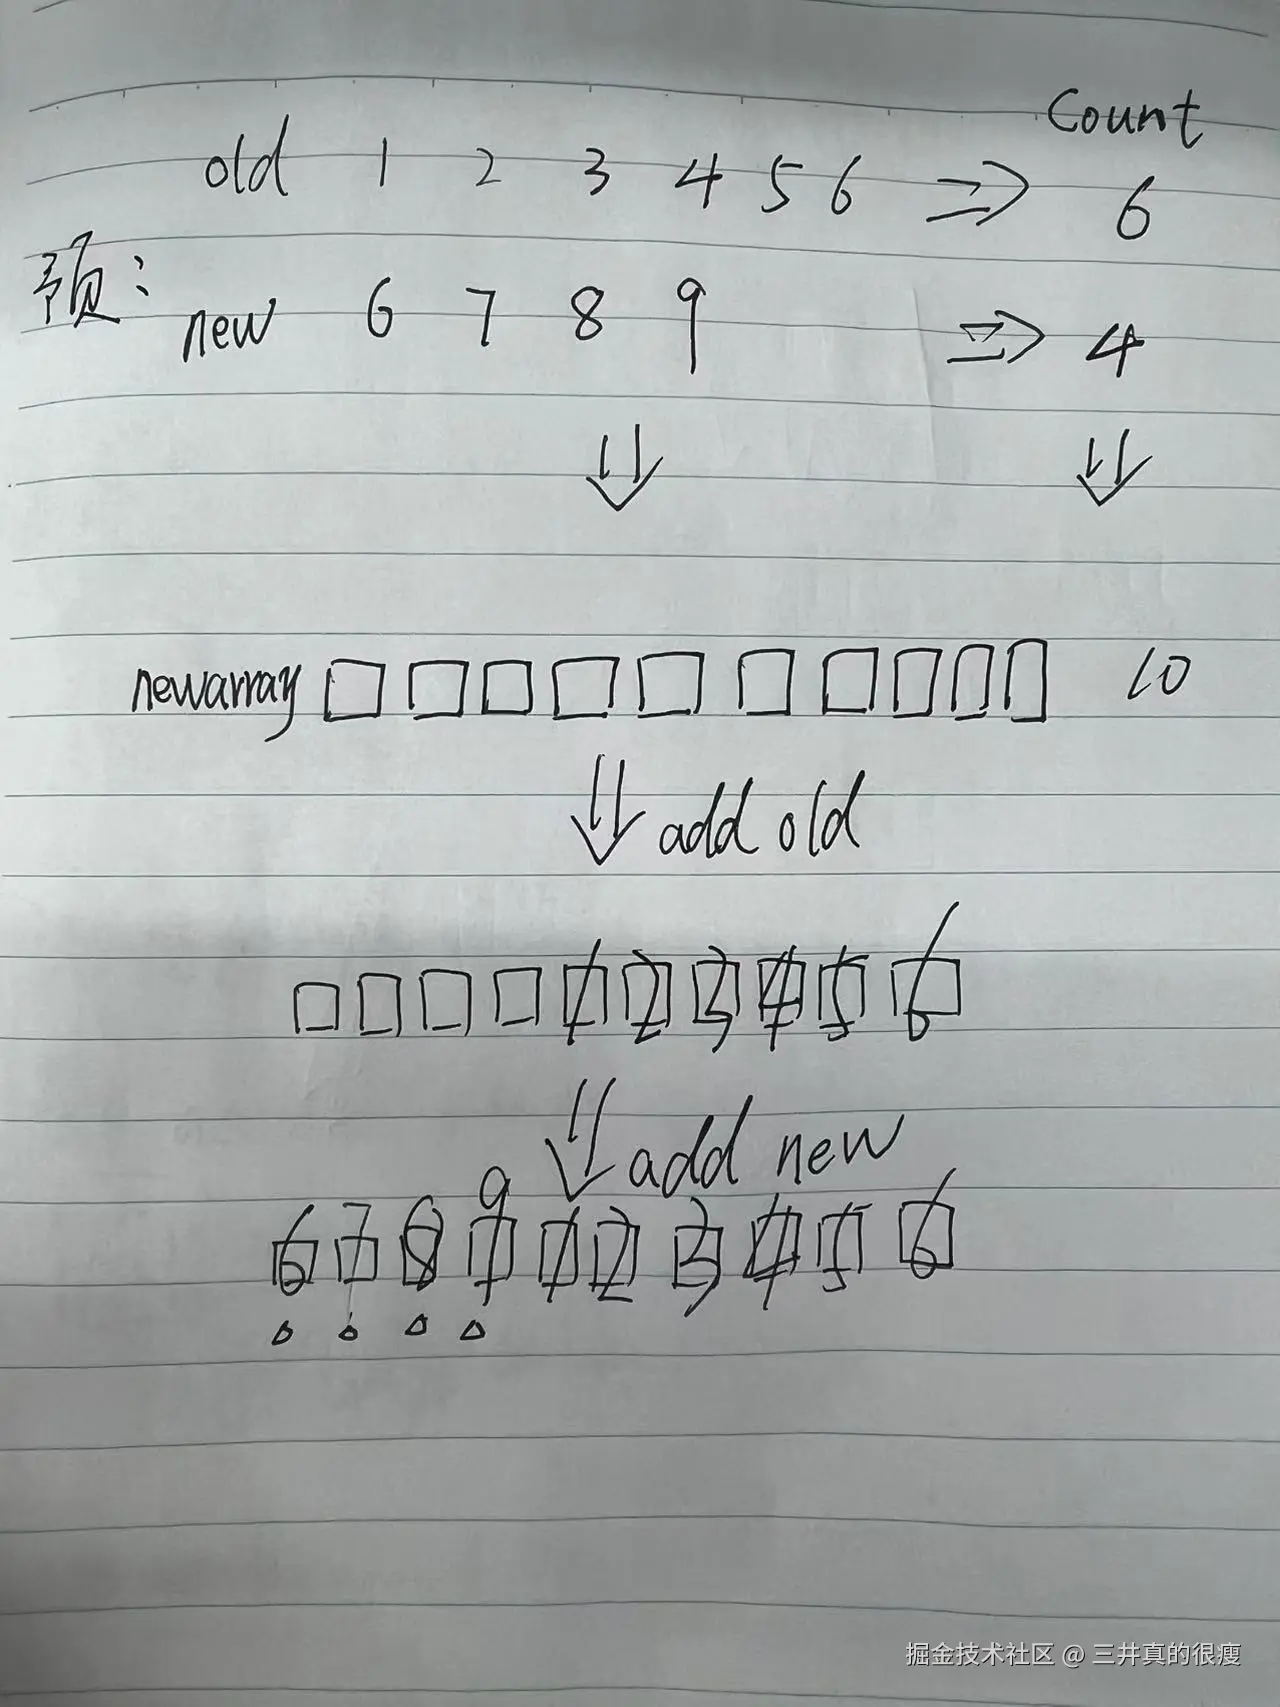 Count
old 1 2 3 4 5 6 6
预：
new 6 7 8 9 4
newarray 10
add old
1 2 3 4 5 6
add new
6 7 8 9 1 2 3 4 5 6
掘金技术社区 @ 三井真的很瘦